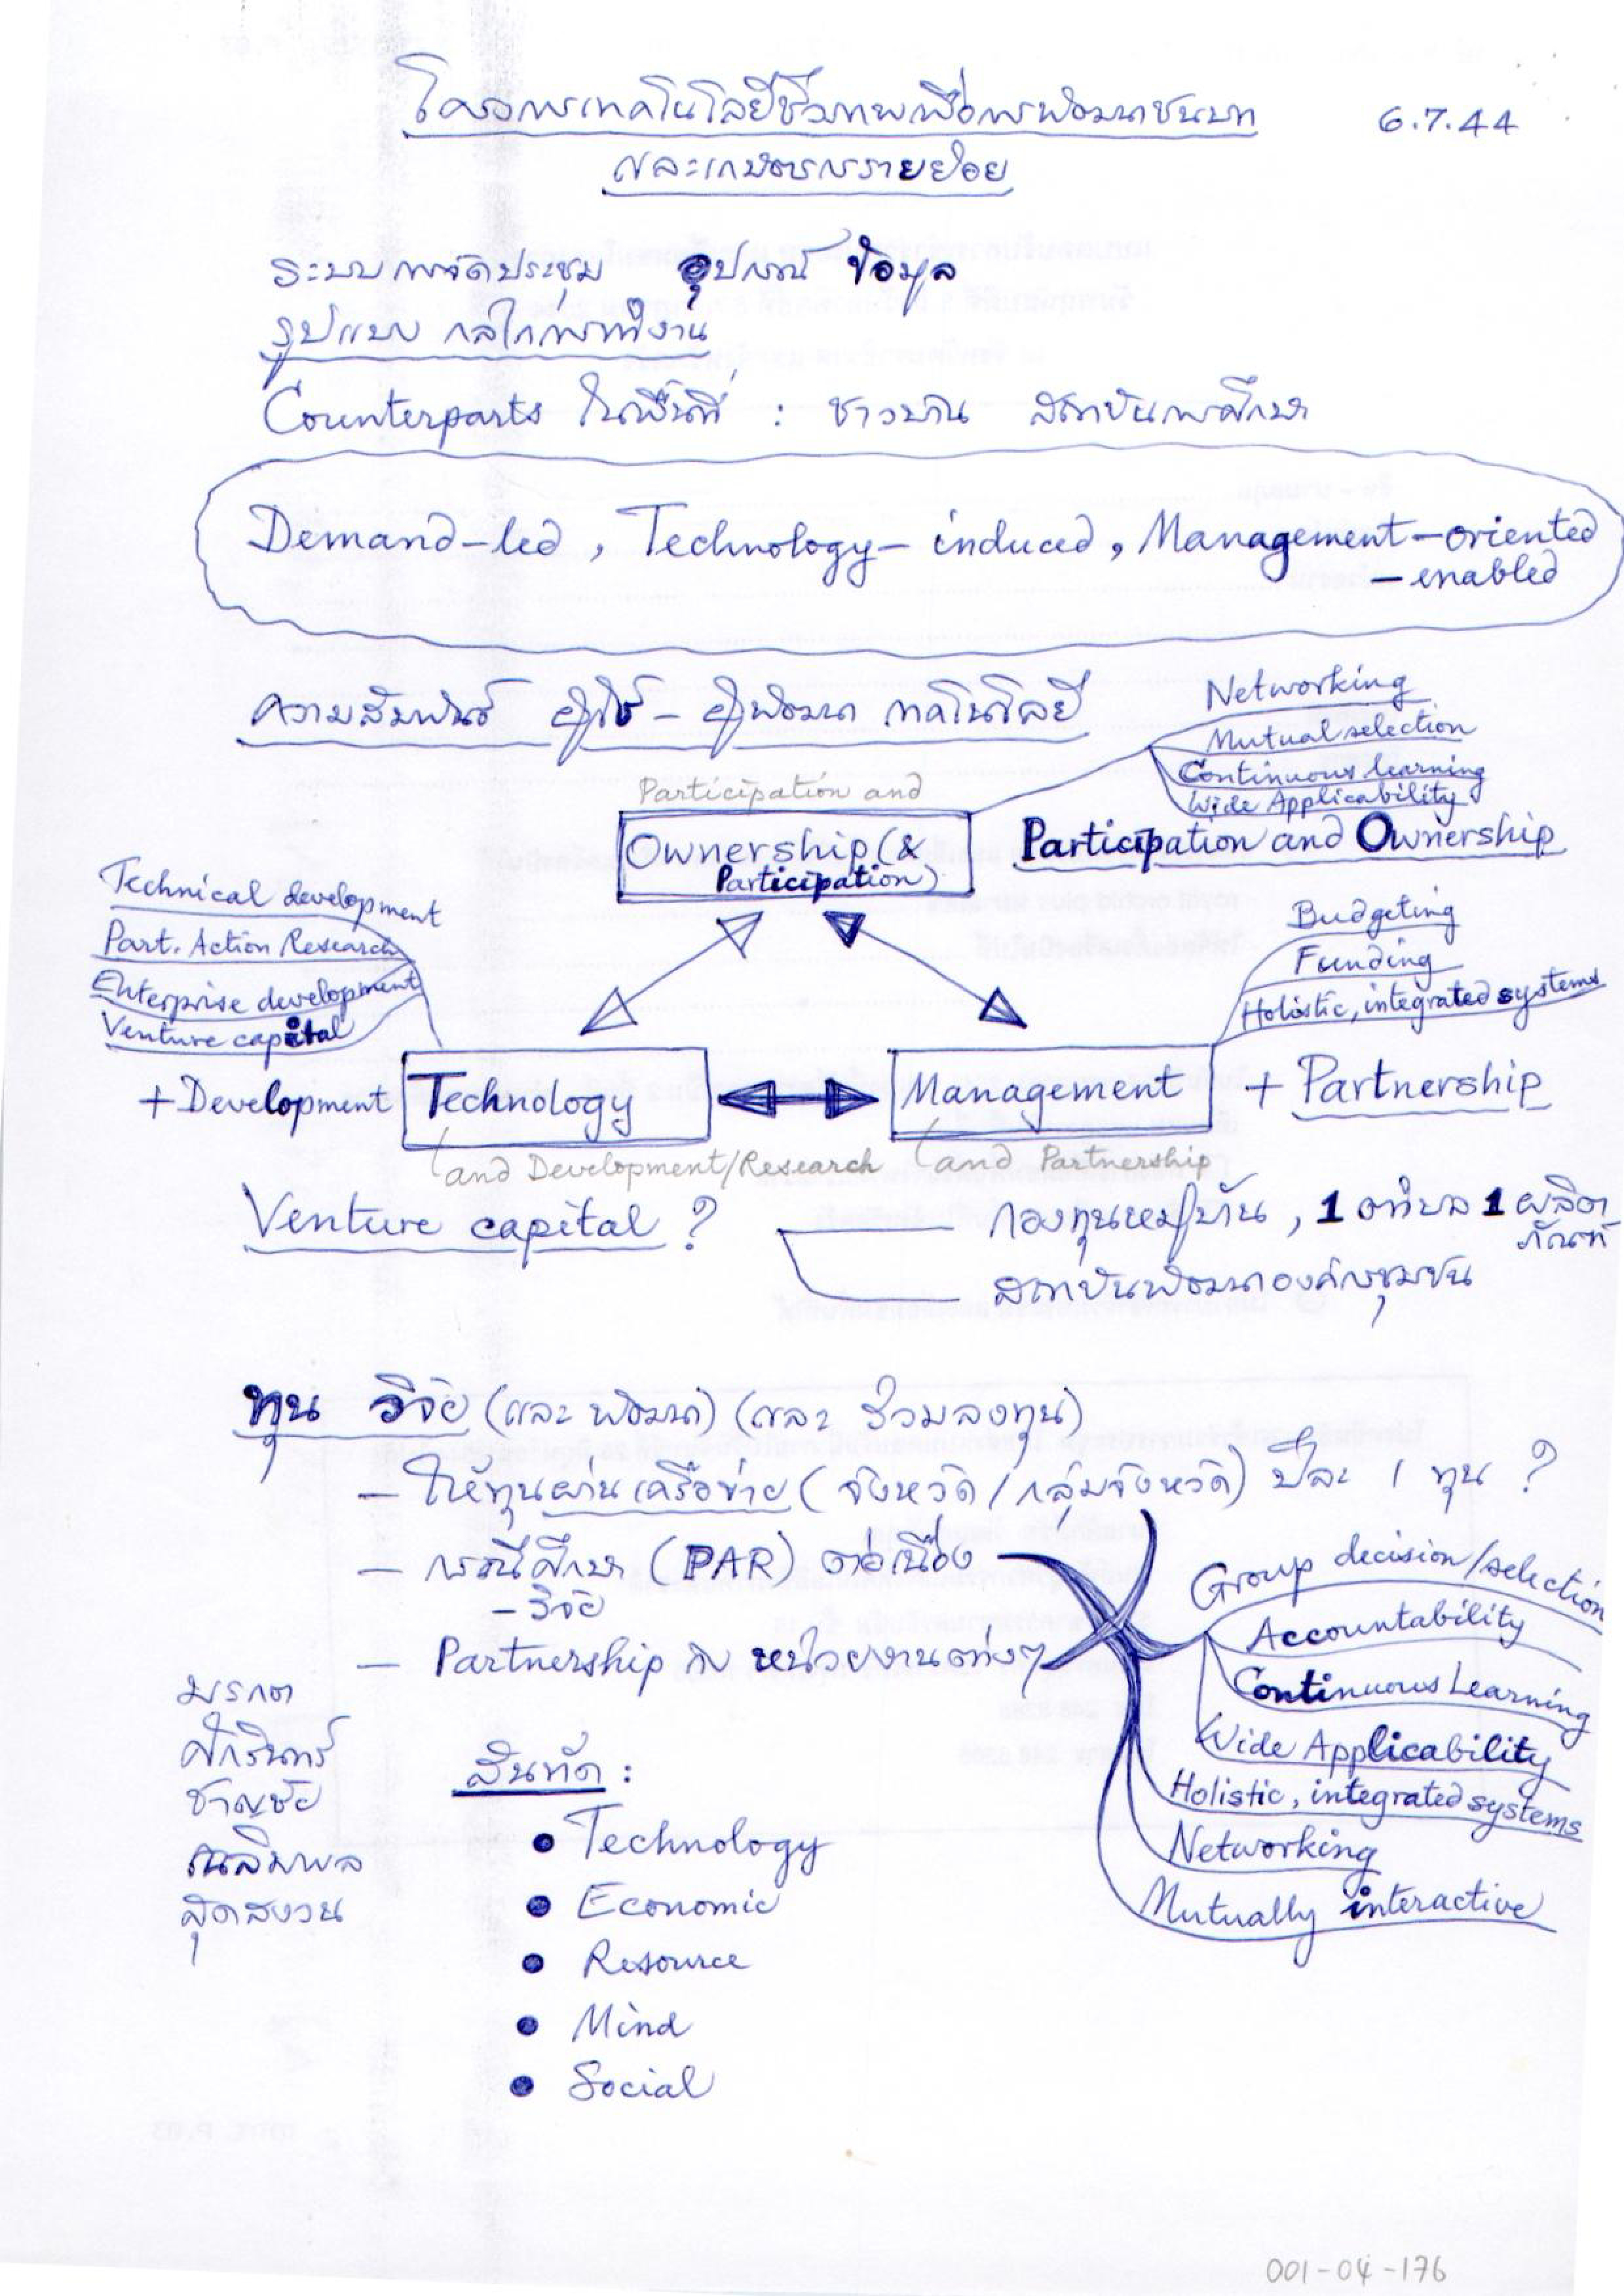 โครงการเทคโนโลยีชีวภาพเพื่อการพัฒนาชนบท
6.7.44
และเกษตรกรรายย่อย
ระบบการจัดประชุม อุปกรณ์ ข้อมูล
รูปแบบ กลไกการทำงาน
Counterparts ในพื้นที่ : ชาวบ้าน สถาบันการศึกษา
Demand-led, Technology-induced, Management-oriented
-enabled
ความสัมพันธ์ ผู้ใช้ - ผู้พัฒนา เทคโนโลยี
Networking
Mutual selection
Continuous learning
Wide Applicability
Participation and
Ownership (&
Participation)
Participation and Ownership
Technical development
Part. Action Research
Enterprise development
Venture capital
Budgeting
Funding
Holistic, integrated systems
+ Development
Technology
Management
+ Partnership
and Development/Research
and Partnership
Venture capital ?
กองทุนหมู่บ้าน, 1 ตำบล 1 ผลิต
ภัณฑ์
สถาบันพัฒนาองค์กรชุมชน
ทุน วิจัย (และ พัฒนา) (และ ร่วมลงทุน)
- ให้ทุนผ่านเครือข่าย (จังหวัด / กลุ่มจังหวัด) ปีละ 1 ทุน ?
- กรณีศึกษา (PAR) ต่อเนื่อง
- วิจัย
- Partnership กับ หน่วยงานต่างๆ
Group decision/selection
Accountability
Continuous Learning
Wide Applicability
Holistic, integrated systems
Networking
Mutually interactive
มรกต
ศักรินทร์
ชาญชัย
สุดสงวน
สันทัด :
• Technology
• Economic
• Resource
• Mind
• Social
001-04-176